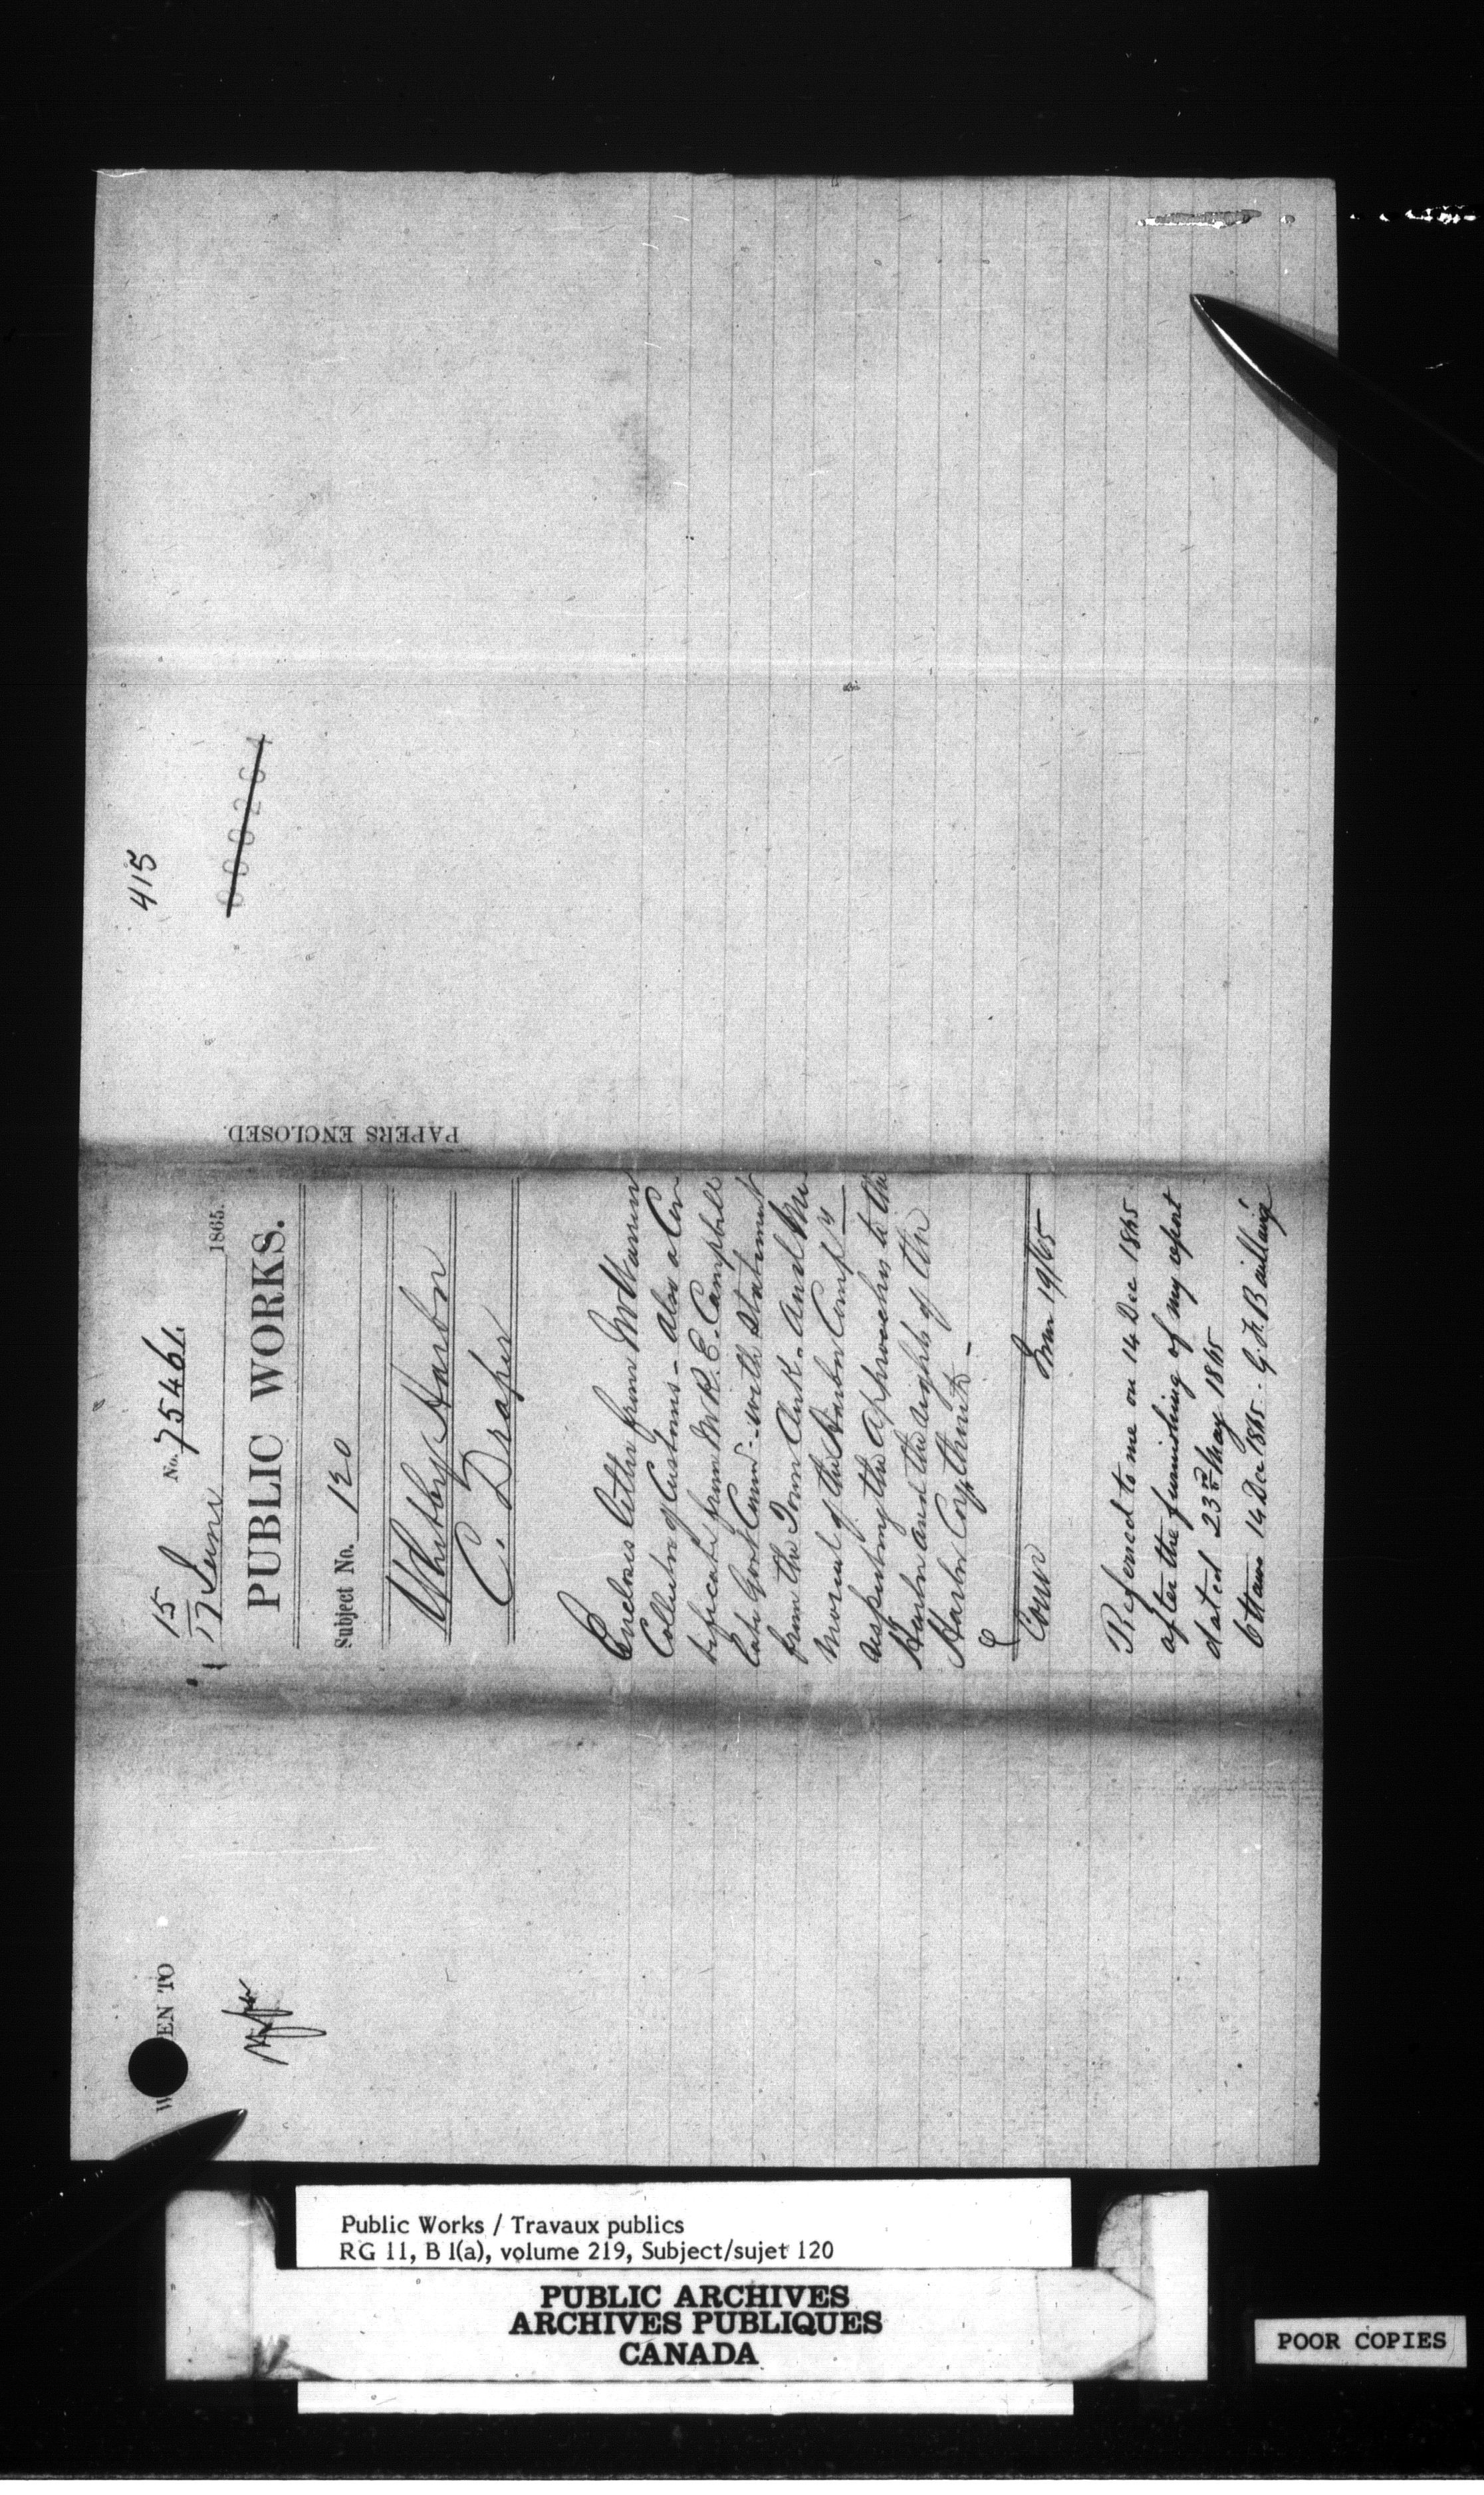 415
000264
PAPERS ENCLOSED.
15
17 June 1865.
No. 75461.
PUBLIC WORKS.
Subject No. 120
Whitby Harbor
C. Draper
Encloses letter from Mr Warren
Collector of Customs - Also a Cer
tificate from Mr R. E. Campbell
late Govt Commr. with statement
from the Town Clerk. And Me
morial of the Harbor Compy
respecting the approaches to the
Harbor and the rights of the
Harbor Coy thereto -
19/65
Referred to me on 14 Dec 1865
after the furnishing of my report
dated 23rd May 1865
Ottawa 14 Dec 1865. G. F. Baillairgé
W EN TO
Public Works / Travaux publics
RG 11, B 1(a), volume 219, Subject/sujet 120
PUBLIC ARCHIVES
ARCHIVES PUBLIQUES
CANADA
POOR COPIES